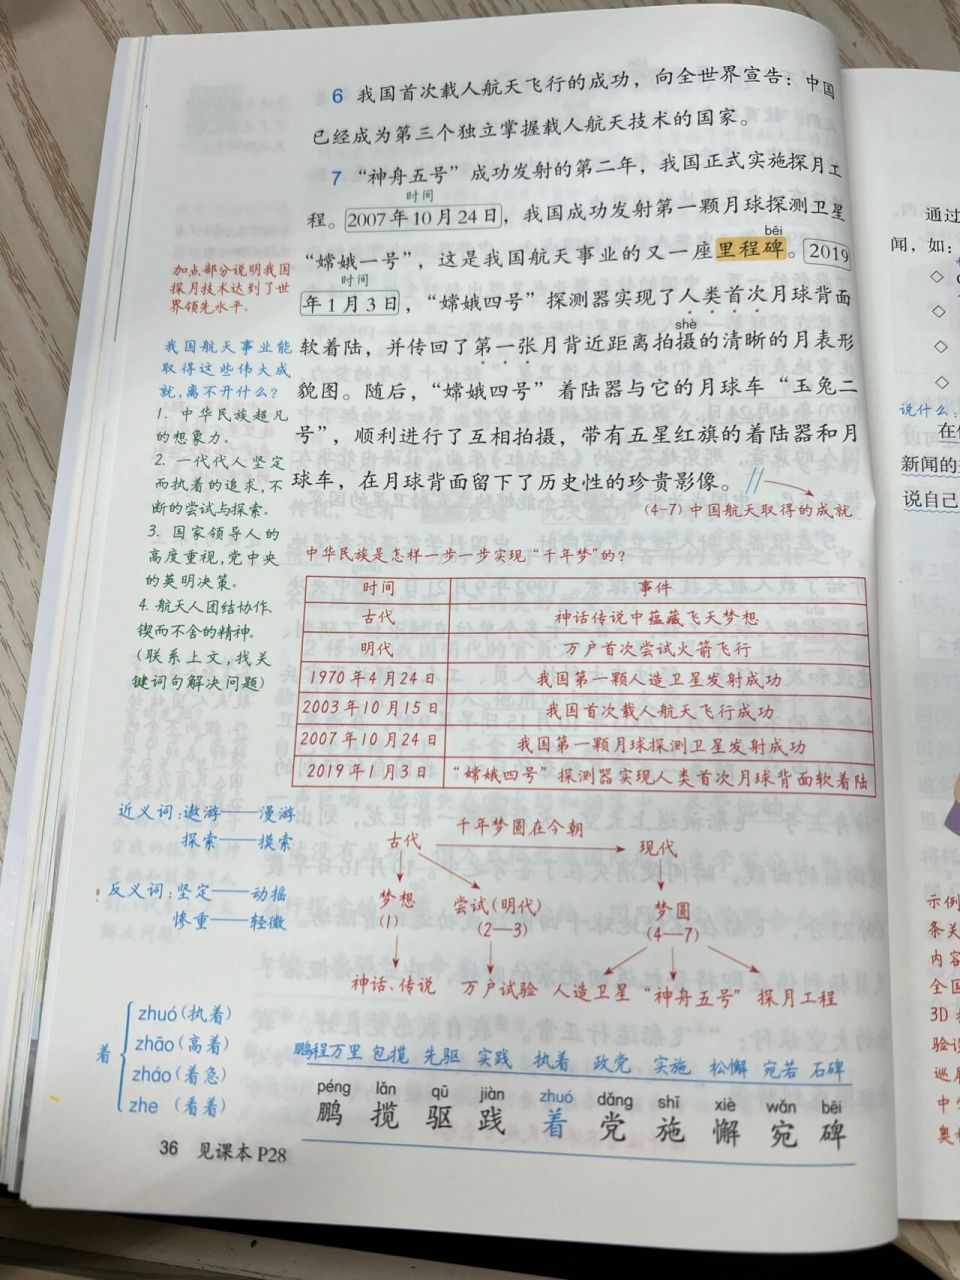 6 我国首次载人航天飞行的成功，向全世界宣告：中国
已经成为第三个独立掌握载人航天技术的国家。
7 “神舟五号”成功发射的第二年，我国正式实施探月工
时间
程。2007年10月24日，我国成功发射第一颗月球探测卫星
bēi
“嫦娥一号”，这是我国航天事业的又一座里程碑。2019
时间
年1月3日，“嫦娥四号”探测器实现了人类首次月球背面
shè
软着陆，并传回了第一张月背近距离拍摄的清晰的月表形
貌图。随后，“嫦娥四号”着陆器与它的月球车“玉兔二
号”，顺利进行了互相拍摄，带有五星红旗的着陆器和月
球车，在月球背面留下了历史性的珍贵影像。
(4-7)中国航天取得的成就
加点部分说明我国
探月技术达到了世
界领先水平。
我国航天事业能
取得这些伟大成
就,离不开什么?
1. 中华民族超凡
的想象力。
2. 一代代人坚定
而执着的追求,不
断的尝试与探索。
3. 国家领导人的
高度重视,党中央
的英明决策。
4. 航天人团结协作、
锲而不舍的精神。
(联系上文,找关
键词句解决问题)
中华民族是怎样一步一步实现“千年梦”的?
时间 事件
古代 神话传说中蕴藏飞天梦想
明代 万户首次尝试火箭飞行
1970年4月24日 我国第一颗人造卫星发射成功
2003年10月15日 我国首次载人航天飞行成功
2007年10月24日 我国第一颗月球探测卫星发射成功
2019年1月3日 “嫦娥四号”探测器实现人类首次月球背面软着陆
近义词:遨游——漫游
探索——摸索
反义词:坚定——动摇
惨重——轻微
千年梦圆在今朝
古代 现代
梦想 尝试(明代) 梦圆
(1) (2—3) (4—7)
神话、传说 万户试验 人造卫星 “神舟五号” 探月工程
着
zhuó(执着)
zhāo(高着)
zháo(着急)
zhe (看着)
鹏程万里 包揽 先驱 实践 执着 政党 实施 松懈 宛若 石碑
péng lǎn qū jiàn zhuó dǎng shī xiè wǎn bēi
鹏 揽 驱 践 着 党 施 懈 宛 碑
36 见课本P28
通过
闻，如：
说什么：
新闻的
说自己
示例
条关
内容
全国
3D
验设
巡展
中学
奥